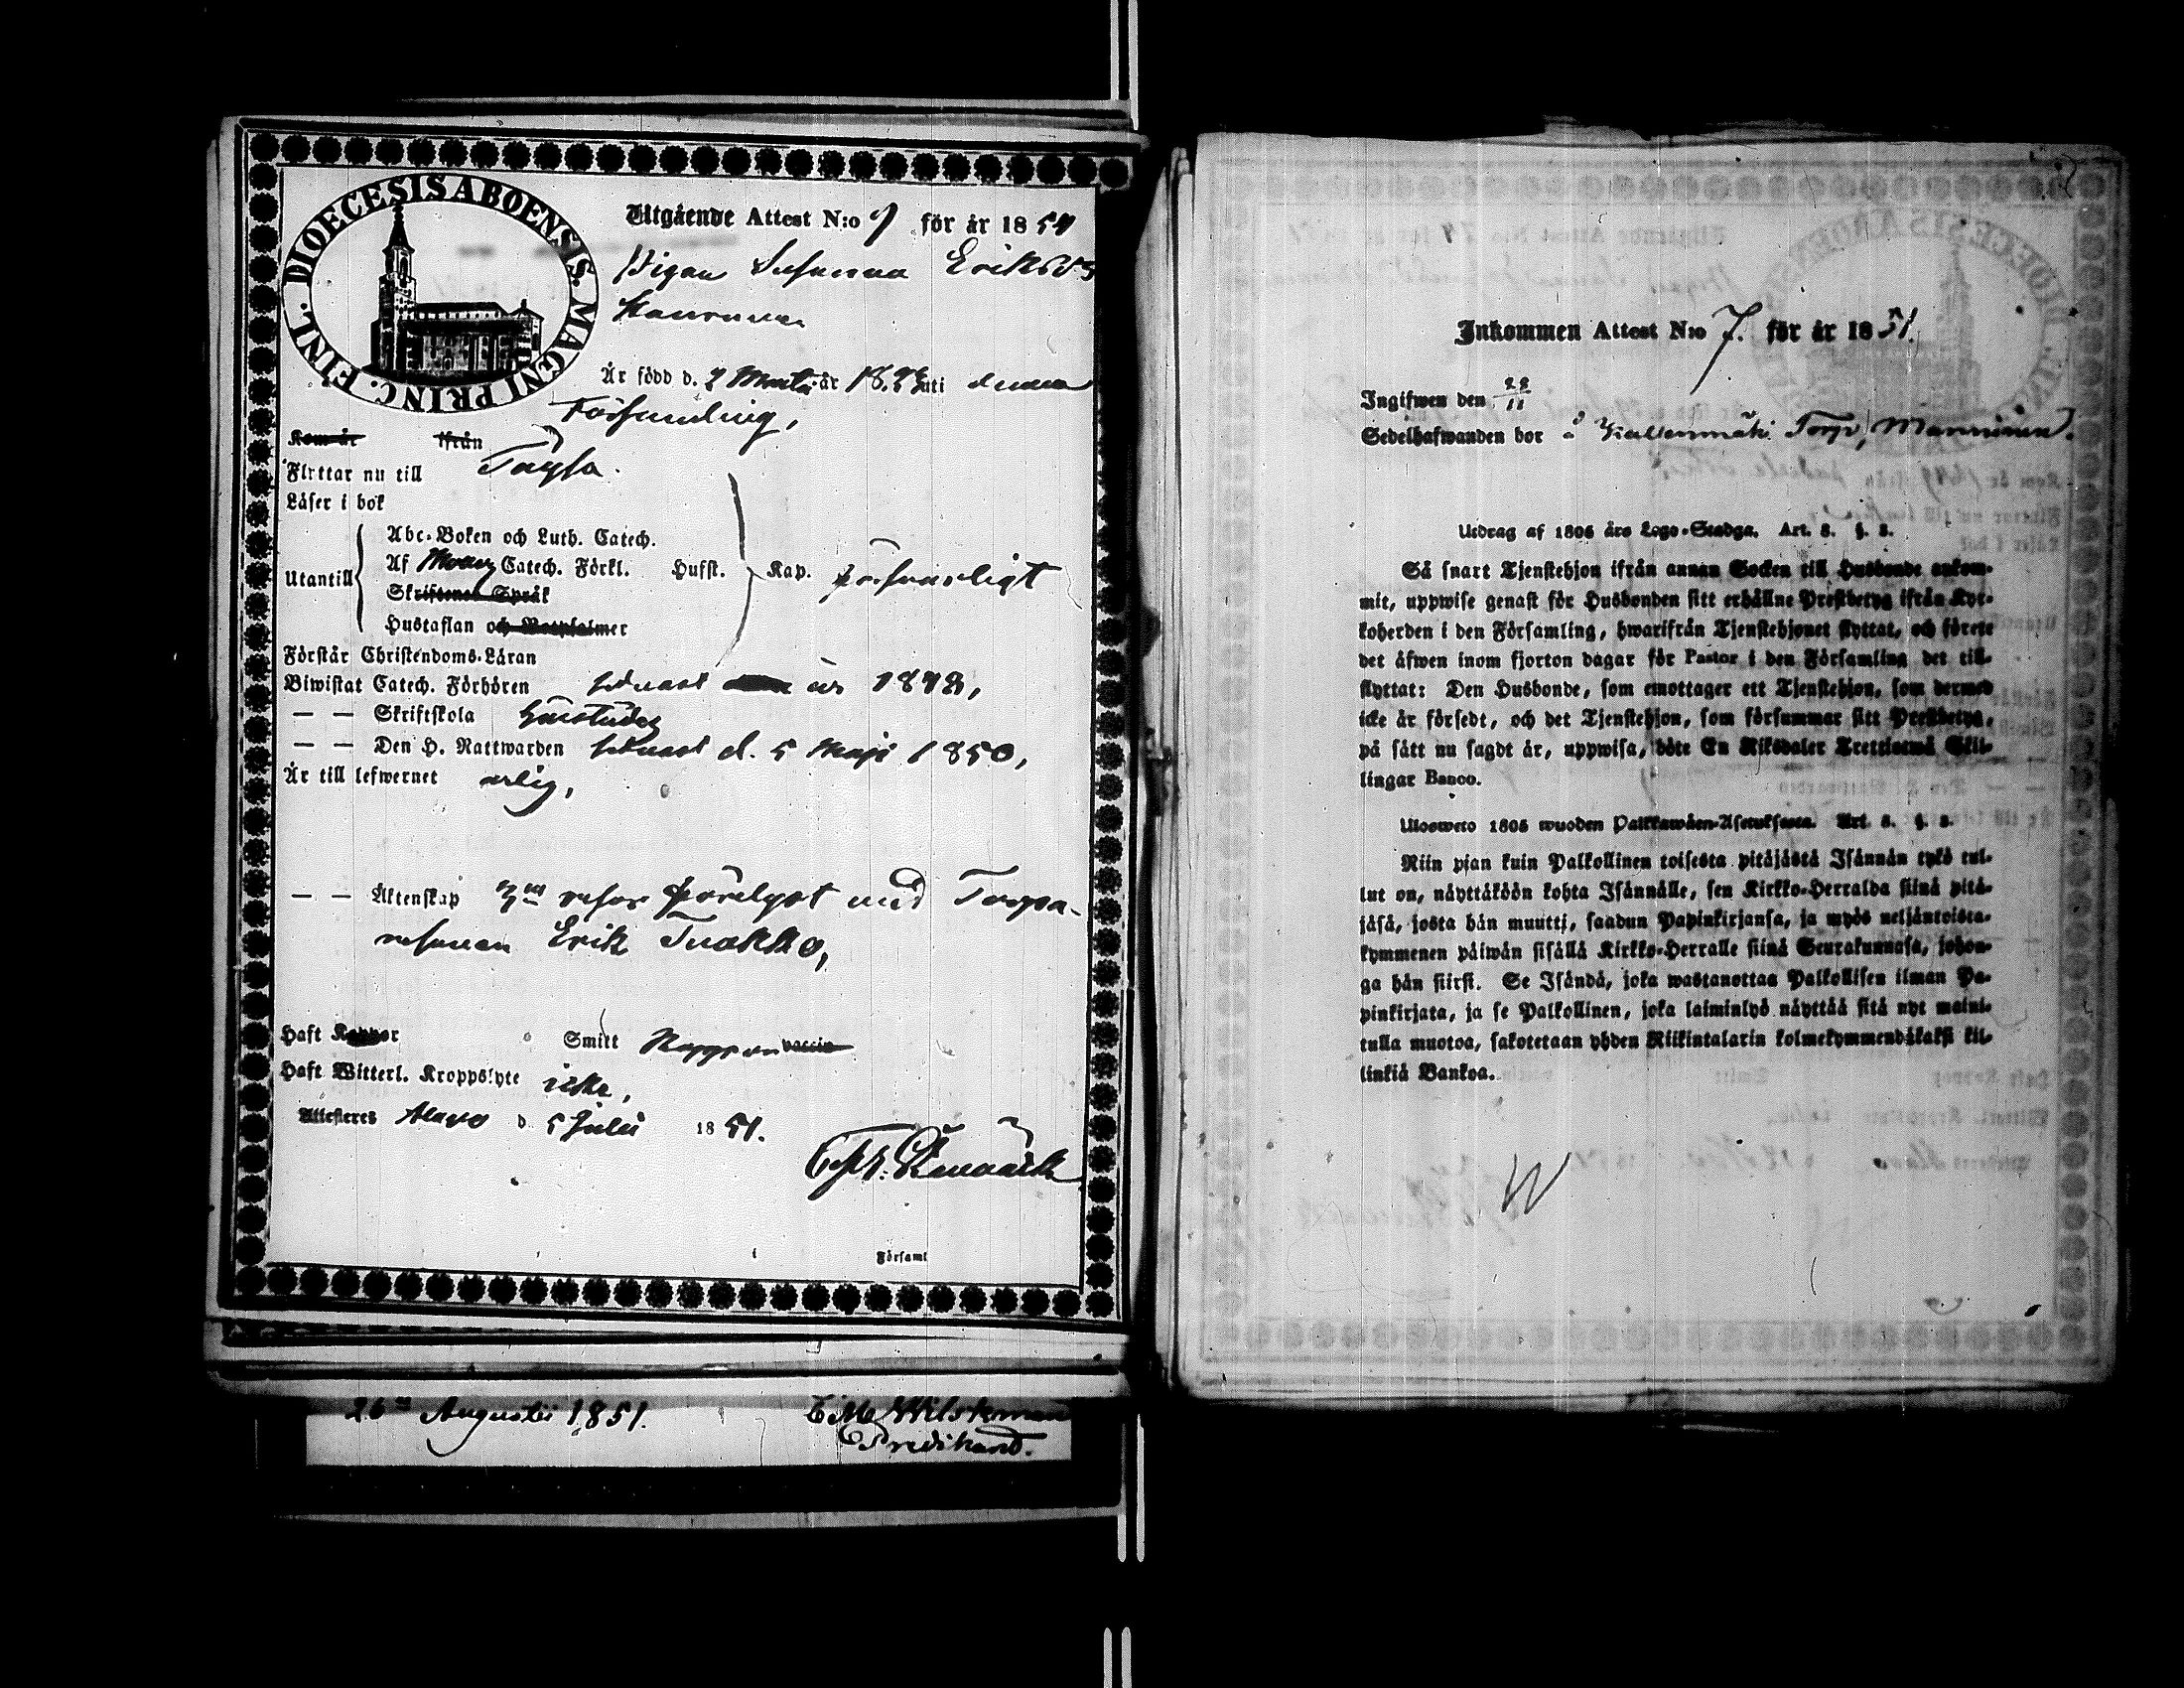 DIOECESIS ABOENSIS. MAGNI PRINC. FINL.
Utgående Attest N:o 7 för år 1851
Pigan Susanna Eriksdr
Är född d. 7 år 18 uti denna
Församling,
Kom år ifrån
Flyttar nu till Töysä.
Läser i bok
Utantill
Abc-Boken och Luth. Catech.
Af Catech. Förkl. Husst. Kap. försvarligt
Skriftenes Språk
Hustaflan och Botpsalmer
Förstår Christendoms-Läran
Biwistat Catech. Förhören senast år 1848,
— — Skriftskola
— — Den H. Nattwarden senast d. 5 Maji 1850,
Är till lefwernet ärlig,
— — Äktenskap förelyst med Torpa-
resonen Erik Tuokko,
Haft Koppor Smitt Koppor vaccin
Haft Witterl. Kroppslyte icke,
Attesteres Alavo d. 5 Julii 1851.
Församl
26 Augusti 1851. Wilskman
Predikant.
Inkommen Attest N:o 7. för år 1851.
Ingifwen den 28/11
Sedelhafwanden bor å Torp,
Utdrag af 1805 års Lego-Stadga. Art. 8. §. 2.
Så snart Tjenstehjon ifrån annan Socken till Husbonde ankom-
mit, uppwise genast för Husbonden sitt erhållne Prestbetyg ifrån Kyr-
koherden i den Församling, hwarifrån Tjenstehjonet flyttat, och förete
det äfwen inom fjorton dagar för Pastor i den Församling det till-
flyttat: Den Husbonde, som emottager ett Tjenstehjon, som dermed
icke är försedt, och det Tjenstehjon, som försummar sitt Prestbetyg,
på sätt nu sagdt är, uppwisa, böte En Riksdaler Trettiotwå Skil-
lingar Banco.
Uloswето 1805 wuoden Palkkawäen-Asetuksesta. Art. 8. §. 2.
Niin pjan kuin Palkollinen toisesta pitäjästä Isännän tykö tul-
lut on, näyttäköön kohta Isännälle, sen Kirkko-Herralda siinä pitä-
jäsä, josta hän muutti, saadun Papinkirjansa, ja myös neljäntoista-
kymmenen päiwän sisällä Kirkko-Herralle siinä Seurakunnasa, johon-
ga hän siirsi. Se Isändä, joka wastanottaa Palkollisen ilman Pa-
pinkirjata, ja se Palkollinen, joka laiminlyö näyttää sitä nyt maini-
tulla muotoa, sakotetaan yhden Riikintalarin kolmekymmendäkaksi kil-
linkiä Bankoa.